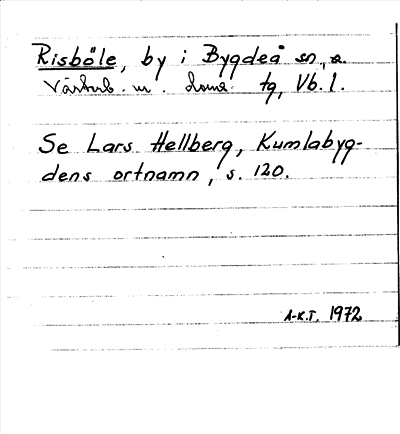 Risböle, by i Bygdeå sn,
Västerb. m. doms. tg, Vb. l.
Se Lars Hellberg, Kumlabyg-
dens ortnamn, s. 120.
A-K.T. 1972